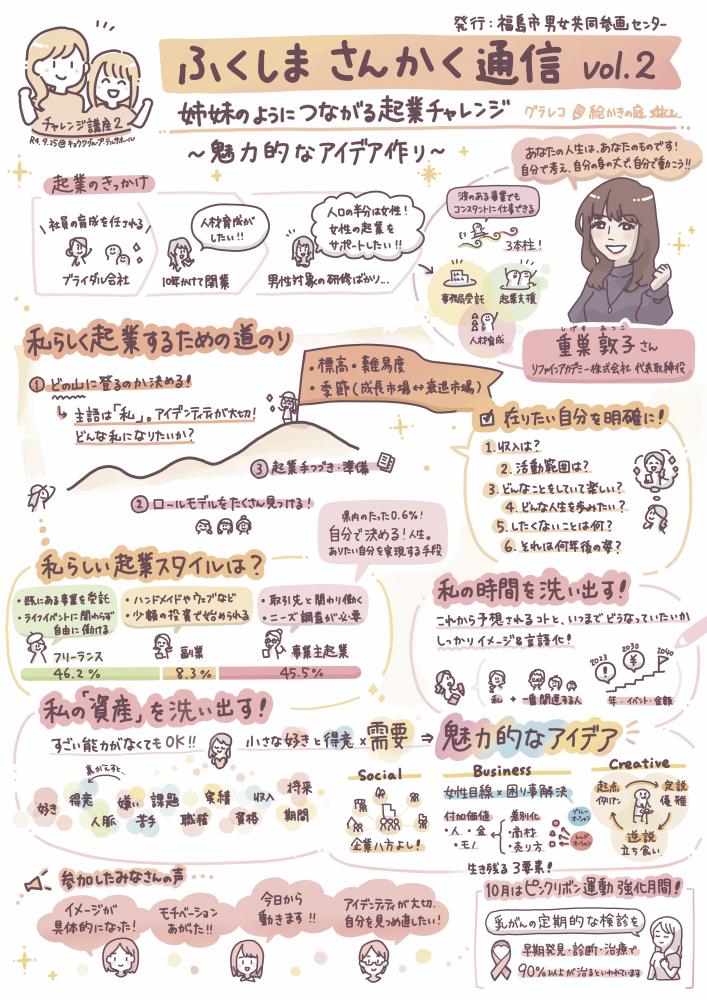 発行：福島市男女共同参画センター
ふくしま さんかく通信 vol.2
チャレンジ講座2
姉妹のようにつながる起業チャレンジ
グラレコ 絵かきの庭
〜魅力的なアイデア作り〜
あなたの人生は、あなたのものです！
自分で考え、自分の身の丈で、自分で動こう!!
起業のきっかけ
社員の育成を任される
ブライダル会社
人材育成が
したい!!
10年かけて開業
人口の半分は女性！
女性の起業を
サポートしたい!!
男性対象の研修ばかり…
波のある事業でも
コンスタントに仕事できる
3本柱！
事務局受託
起業支援
人材育成
しげす あつこ
重巣 敦子さん
リファインアカデミー株式会社 代表取締役
私らしく起業するための道のり
① どの山に登るのか決める！
↳ 主語は「私」。アイデンティティが大切！
どんな私になりたいか？
・標高・難易度
・季節(成長市場↔衰退市場)
③ 起業手つづき・準備
② ロールモデルをたくさん見つける！
☑ 在りたい自分を明確に！
1.収入は？
2.活動範囲は？
3.どんなことをしていて楽しい？
4.どんな人生を歩みたい？
5.したくないことは何？
6.それは何年後の姿？
県内のたった0.6%！
自分で決める！人生。
ありたい自分を実現する手段
私らしい起業スタイルは？
・既にある事業を受託
・ライフイベントに関わらず
自由に働ける
フリーランス
46.2%
・ハンドメイドやウェブなど
・少額の投資で始められる
副業
8.3%
・取引先と関わり働く
・ニーズ調査が必要
事業主起業
45.5%
私の時間を洗い出す！
これから予想されるコトと、いつまでどうなっていたいか
しっかりイメージ&言語化！
私 + 一番関連する人
2023
2030
2040
年・イベント・金額
私の「資産」を洗い出す！
すごい能力がなくてもOK!!
小さな好きと得意×需要 ⇒ 魅力的なアイデア
裏がえすと
好き
得意
嫌い
課題
実績
収入
将来
人脈
苦手
職種
資格
期間
Social
企業八方よし！
Business
女性目線×困り事解決
付加価値
・人・金
・モノ
・差別化
・商材
・売り方
ブルーオーシャン
レッドオーシャン
Creative
起点
イタリアン
定説
優雅
逆説
立ち食い
生き残る3要素！
参加したみなさんの声
イメージが
具体的になった！
モチベーション
あがった!!
今日から
動きます!!
アイデンティティが大切。
自分を見つめ直したい！
10月はピンクリボン運動 強化月間！
乳がんの定期的な検診を
早期発見・診断・治療で
90%以上が治るといわれています